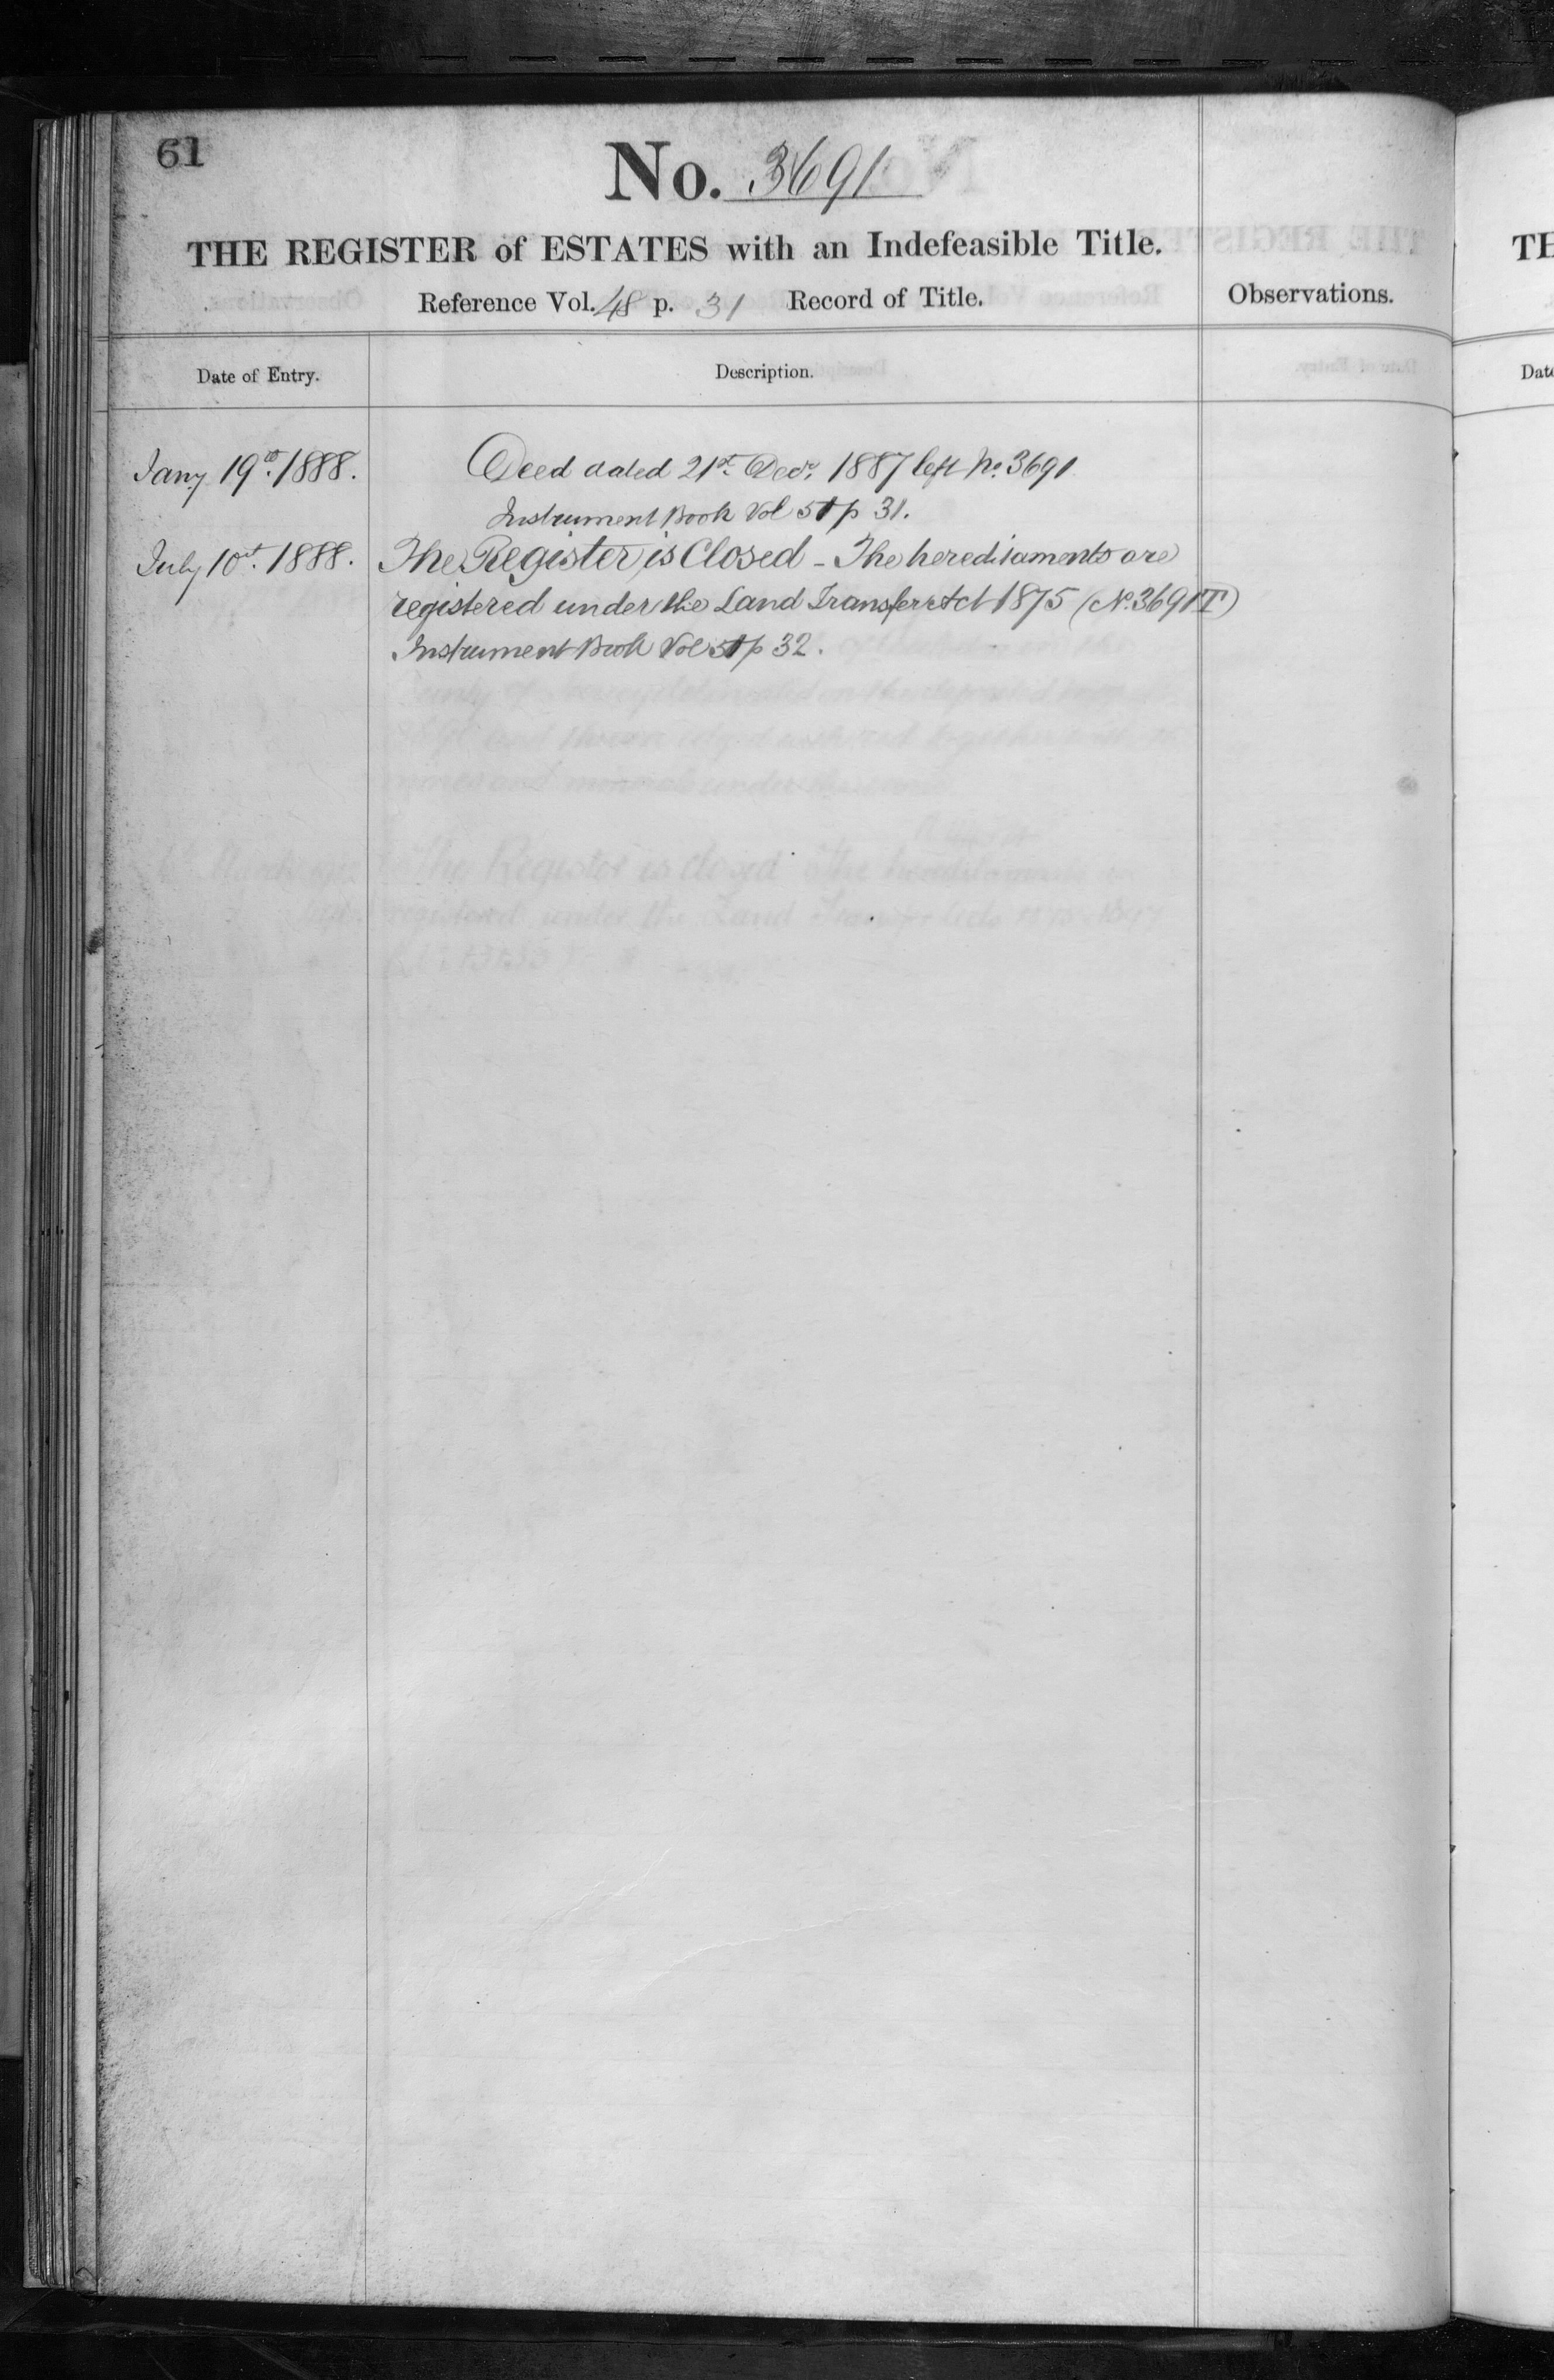 61
No. 3691
THE REGISTER of ESTATES with an Indefeasible Title.
Reference Vol. 48 p. 31 Record of Title.
Observations.
Date of Entry.
Description.
Jany 19th. 1888.
Deed dated 21st. Decr. 1887 left No. 3691
Instrument Book Vol 51 p 31.
July 10th. 1888.
The Register is Closed - The hereditaments are
registered under the Land Transfer Act 1875 (No. 3691T)
Instrument Book Vol 51 p 32.